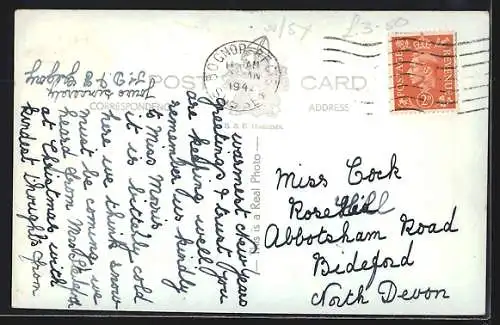 21/57 £3.50
BOGNOR REGIS
SUSSEX
194
POST CARD
CORRESPONDENCE
ADDRESS
This is a Real Photo
POSTAGE REVENUE
2D
Warmest New Years
greetings & trust you
are keeping well
remember us kindly
to Miss Morris.
it is bitterly cold
here we think snow
must be coming, we
heard from
at Christmas with
kindest thoughts from
Yours sincerely
Miss Cock
Rose Hill
Abbotsham Road
Bideford
North Devon